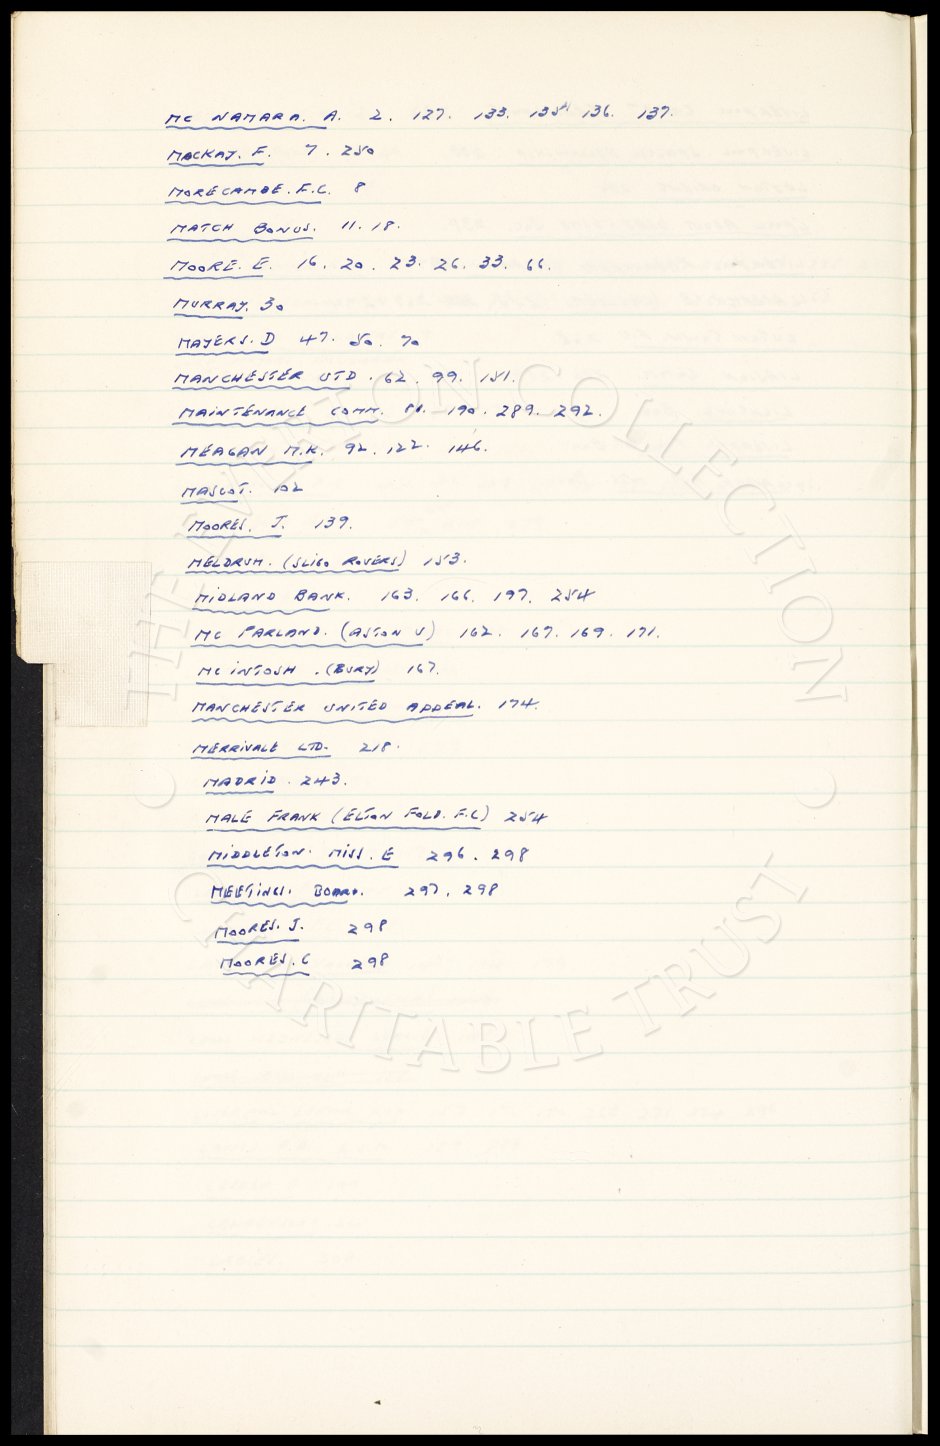 MC NAMARA. A. 2. 127. 133. 135 136. 137.
MACKAY. F. 7. 250
MORECAMBE. F.C. 8
MATCH BONUS. 11. 18.
MOORE. E. 16. 20. 23. 26. 33. 66.
MURRAY. 30
MAYERS. D 47. 50. 70
MANCHESTER UTD. 62. 99. 151.
MAINTENANCE COMM. 81. 190. 289. 292.
MEAGAN M.K. 92. 122. 146.
MASCOT. 102
MOORES. J. 139.
MELDRUM. (SLIGO ROVERS) 153.
MIDLAND BANK. 163. 166. 197. 254
MC PARLAND. (ASTON V) 162. 167. 169. 171.
MC INTOSH. (BURY) 167.
MANCHESTER UNITED APPEAL. 174.
MERRIVALE LTD. 218.
MADRID. 243.
MALE FRANK (ELTON FOLD. F.C) 254
MIDDLETON. MISS. E 296. 298
MEETINGS. BOARD. 297. 298
MOORES. J. 298
MOORES. C 298
THE EVERTON COLLECTION
CHARITABLE TRUST